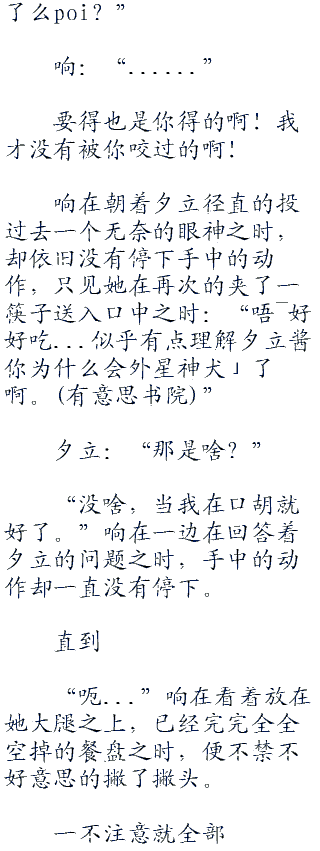 了么poi？”
响：“......”
要得也是你得的啊！我
才没有被你咬过的啊！
响在朝着夕立径直的投
过去一个无奈的眼神之时，
却依旧没有停下手中的动
作，只见她在再次的夹了一
筷子送入口中之时：“唔~好
好吃...似乎有点理解夕立酱
你为什么会外星神犬」了
啊。(有意思书院)”
夕立：“那是啥？”
“没啥，当我在口胡就
好了。”响在一边在回答着
夕立的问题之时，手中的动
作却一直没有停下。
直到
“呃...”响在看着放在
她大腿之上，已经完完全全
空掉的餐盘之时，便不禁不
好意思的撇了撇头。
一不注意就全部